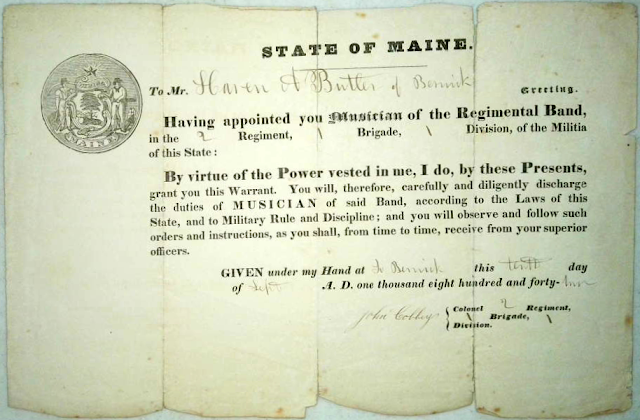 STATE OF MAINE.
MAINE
To Mr. Haven A Butler of Berwick Greeting.
Having appointed you Musician of the Regimental Band,
in the 2 Regiment, 1 Brigade, 1 Division, of the Militia
of this State:
By virtue of the Power vested in me, I do, by these Presents,
grant you this Warrant. You will, therefore, carefully and diligently discharge
the duties of MUSICIAN of said Band, according to the Laws of this
State, and to Military Rule and Discipline; and you will observe and follow such
orders and instructions, as you shall, from time to time, receive from your superior
officers.
GIVEN under my Hand at So Berwick this tenth day
of Sept A. D. one thousand eight hundred and forty-two
John Colonel 2 Regiment,
1 Brigade, 1
Division.